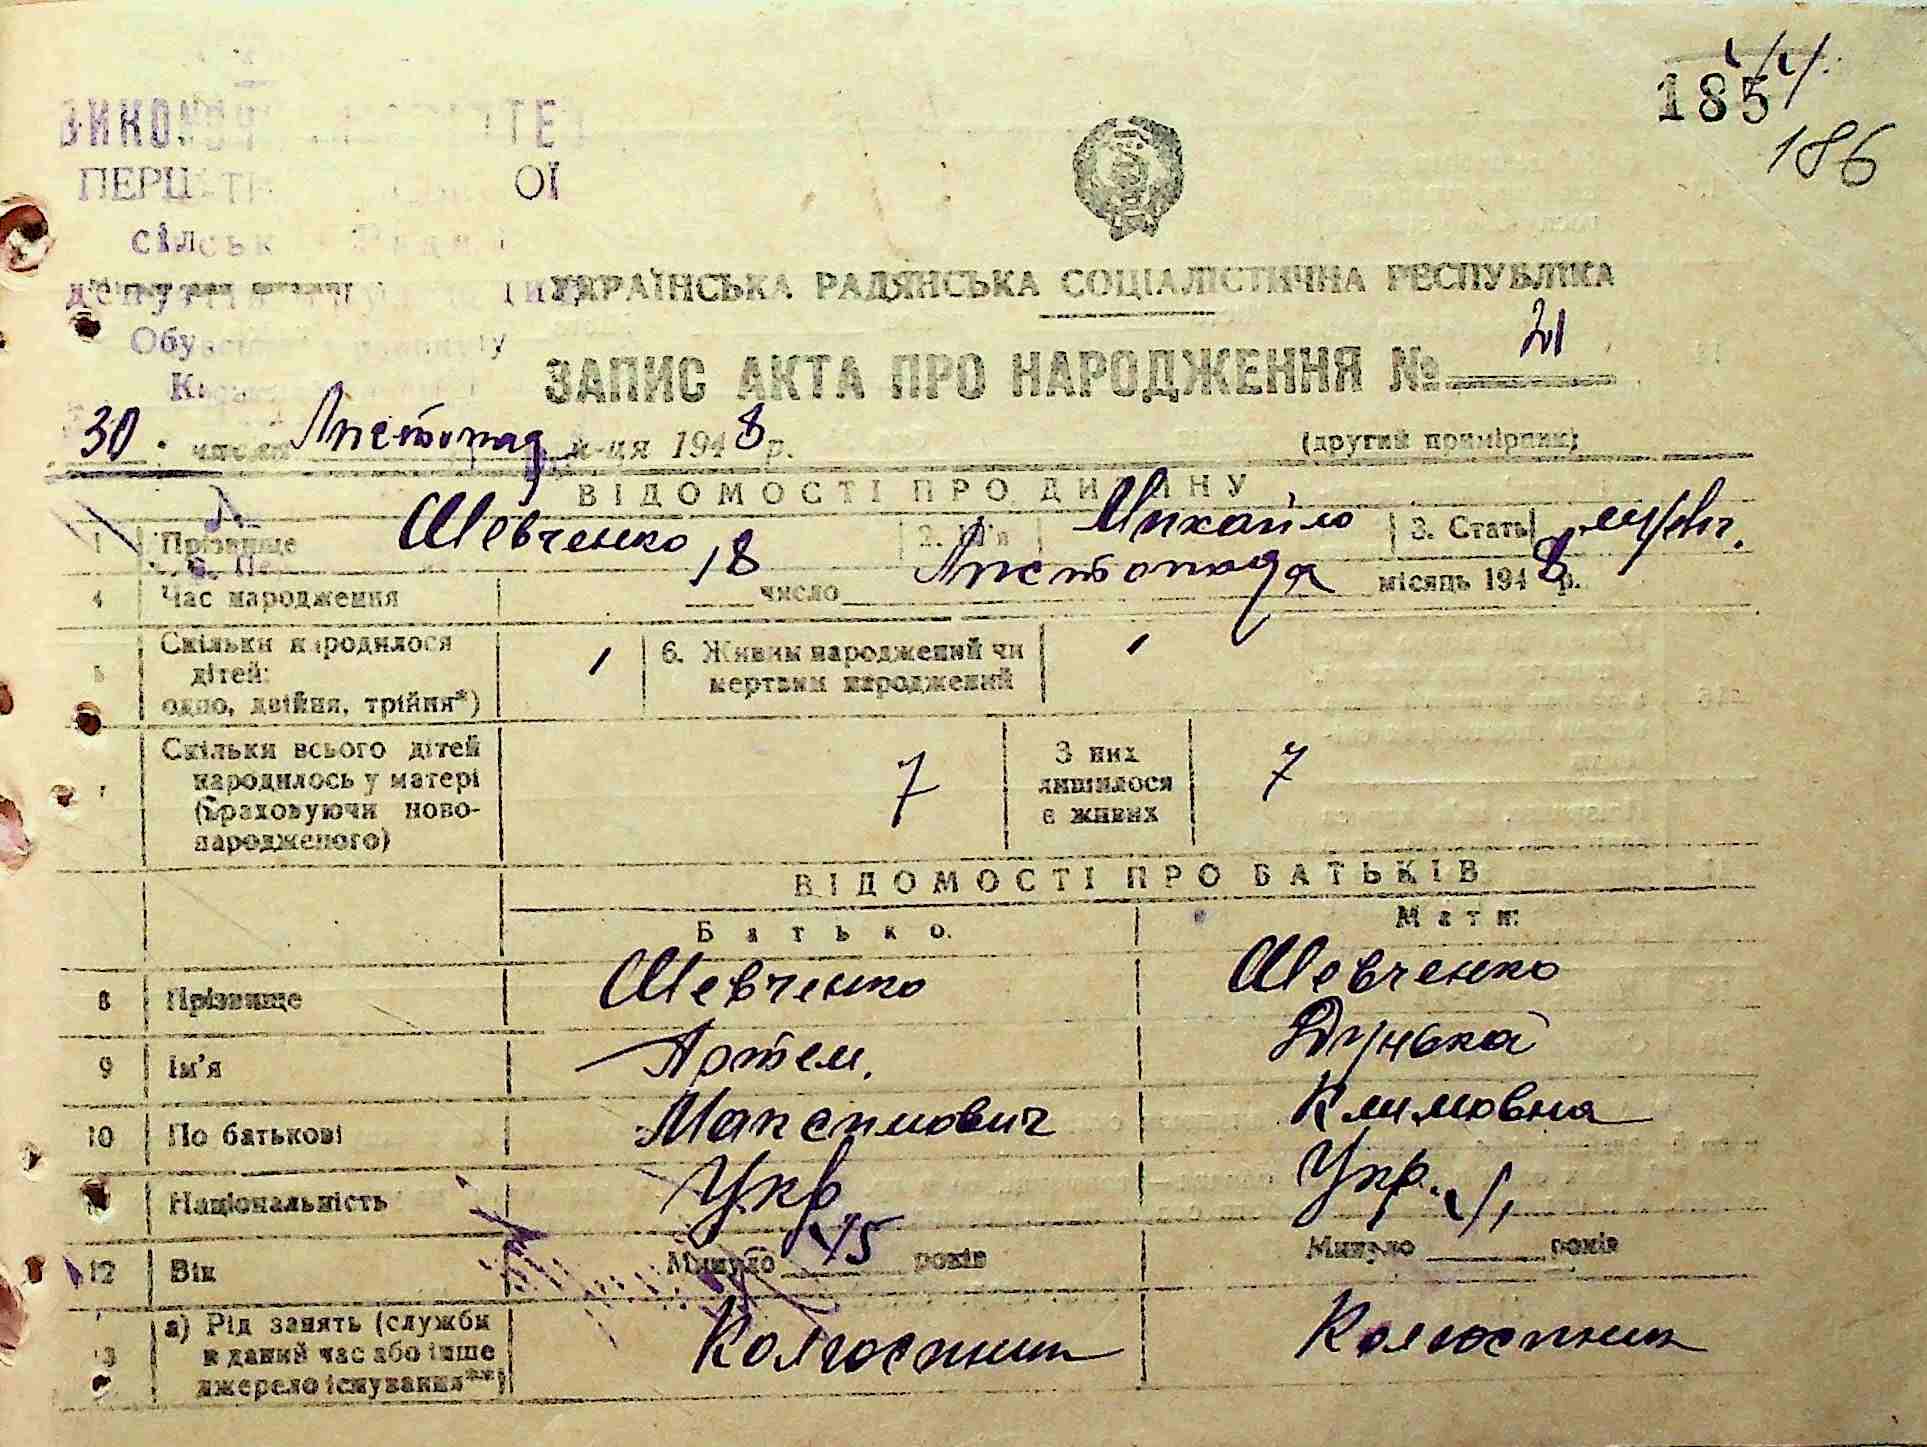 185
186
ОЇ
УКРАЇНСЬКА РАДЯНСЬКА СОЦІАЛІСТИЧНА РЕСПУБЛІКА
ЗАПИС АКТА ПРО НАРОДЖЕННЯ № 21
30 числа Листопад м-ця 1948 р. (другий примірник)
ВІДОМОСТІ ПРО ДИТИНУ
1 Прізвище Шевченко 2. Ім'я Михайло 3. Стать
4 Час народження 18 число Листопада місяць 1948 р.
5 Скільки народилося дітей: одно, двійня, трійня*) 1 6. Живим народжений чи мертвим народжений 1
7 Скільки всього дітей народилось у матері (враховуючи новонародженого) 7 З них лишилося в живих 7
ВІДОМОСТІ ПРО БАТЬКІВ
Батько Мати
8 Прізвище Шевченко Шевченко
9 Ім'я Артем. Дунька
10 По батькові Максимович Климовна
11 Національність Укр Укр.
12 Вік Минуло 45 років Минуло років
13 а) Рід занять (служби в даний час або інше джерело існування**) Колгоспник Колгоспник